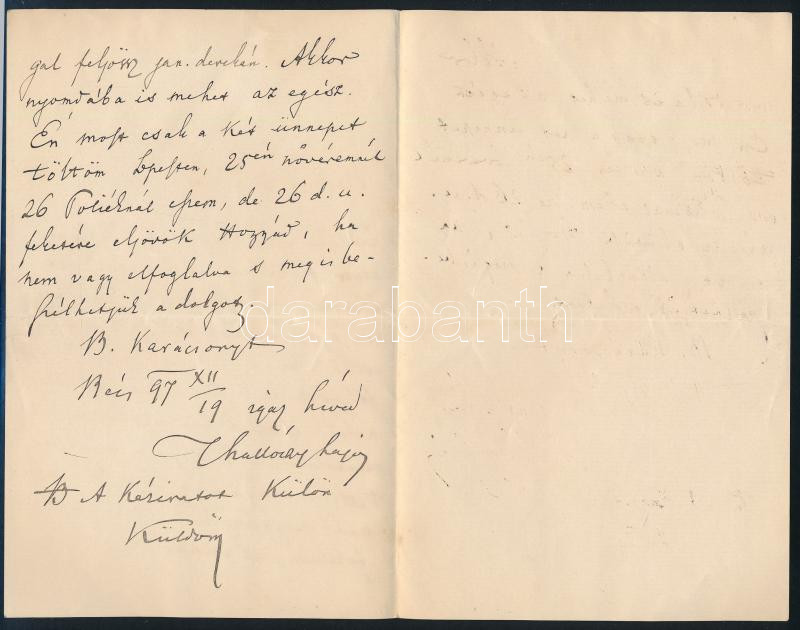 gal feljössz jan. derekán. Akkor
nyomdába is mehet az egész.
Én most csak a két ünnepet
töltöm bpesten, 25én nővéremnél
26 Poliéknál eszem, de 26 d. u.
feketére eljövök Hozzád, ha
nem vagy elfoglalva s meg is be-
szélhetjük a dolgot.
B. Karácsonyt
Bécs 97 XII/19 igaz híved
Thallóczy Lajos
A Kéziratot Külön
Küldöm
darabanth